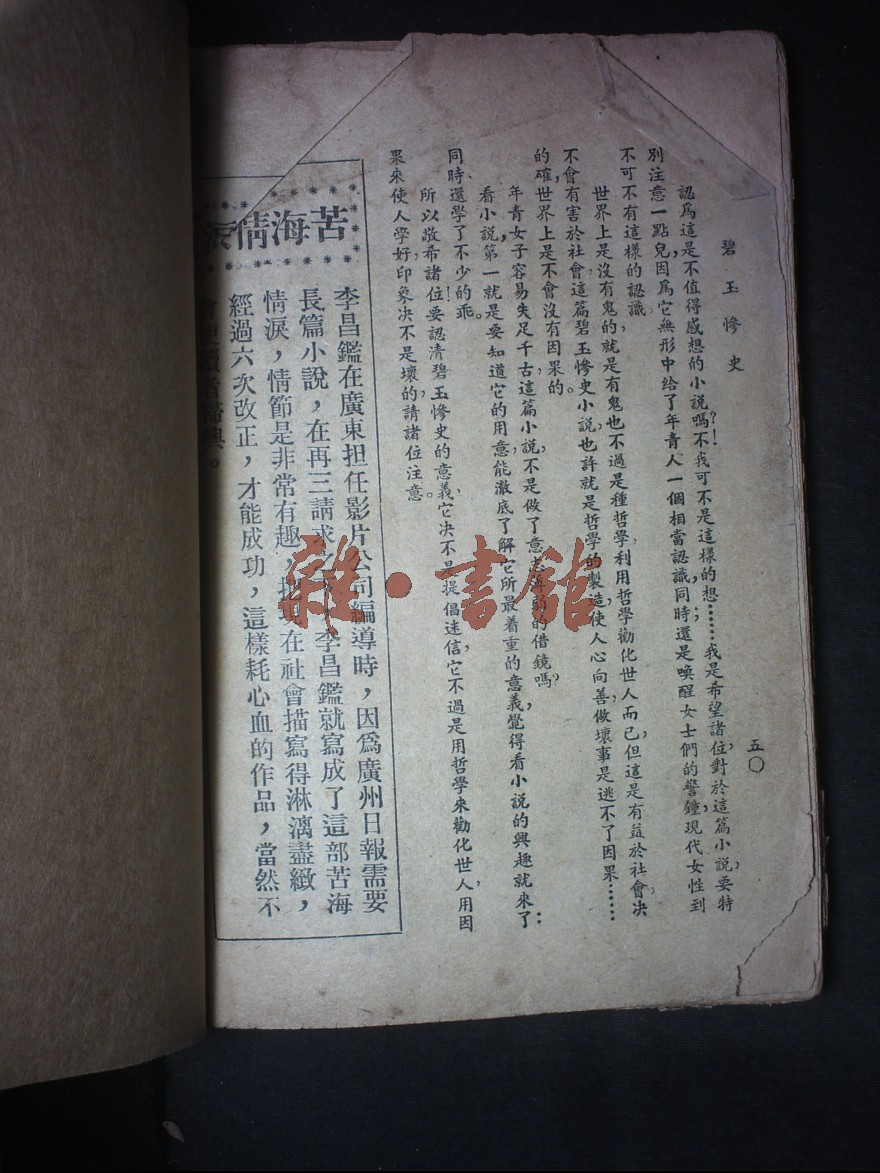 碧玉慘史
五〇
認爲這是不值得感想的小說嗎?!不,我可不是這樣的想……我是希望諸位,對於這篇小說,要特
別注意一點兒,因爲它無形中給了年青人一個相當認識,同時還是喚醒女士們的警鐘,現代女性到
不可不有這樣的認識;
世界上是沒有鬼的,就是有鬼也不過是種哲學,利用哲學勸化世人而已,但這是有益於社會,决
不會有害於社會,這篇碧玉慘史小說,也許就是哲學的製造,使人心向善,做壞事是逃不了因果……
的確,世界上是不會沒有因果的。
年青女子容易失足千古,這篇小說,不是做了意志薄弱的借鏡嗎?
看小說,第一就是要知道它的用意,能澈底了解它所最着重的意義,覺得看小說的興趣就來了:
同時、還學了不少的乖。
所以敬希諸位!要認清碧玉慘史的意義、它决不是提倡迷信,它不過是用哲學來勸化世人,用因
果來使人學好,印象决不是壞的,請諸位注意。
苦海情淚
李昌鑑在廣東担任影片公司編導時,因爲廣州日報需要
長篇小說,在再三請求之下,李昌鑑就寫成了這部苦海
情淚,情節是非常有趣,把現在社會描寫得淋漓盡緻,
經過六次改正,才能成功,這樣耗心血的作品,當然不
會使讀者掃興。
雜·書館